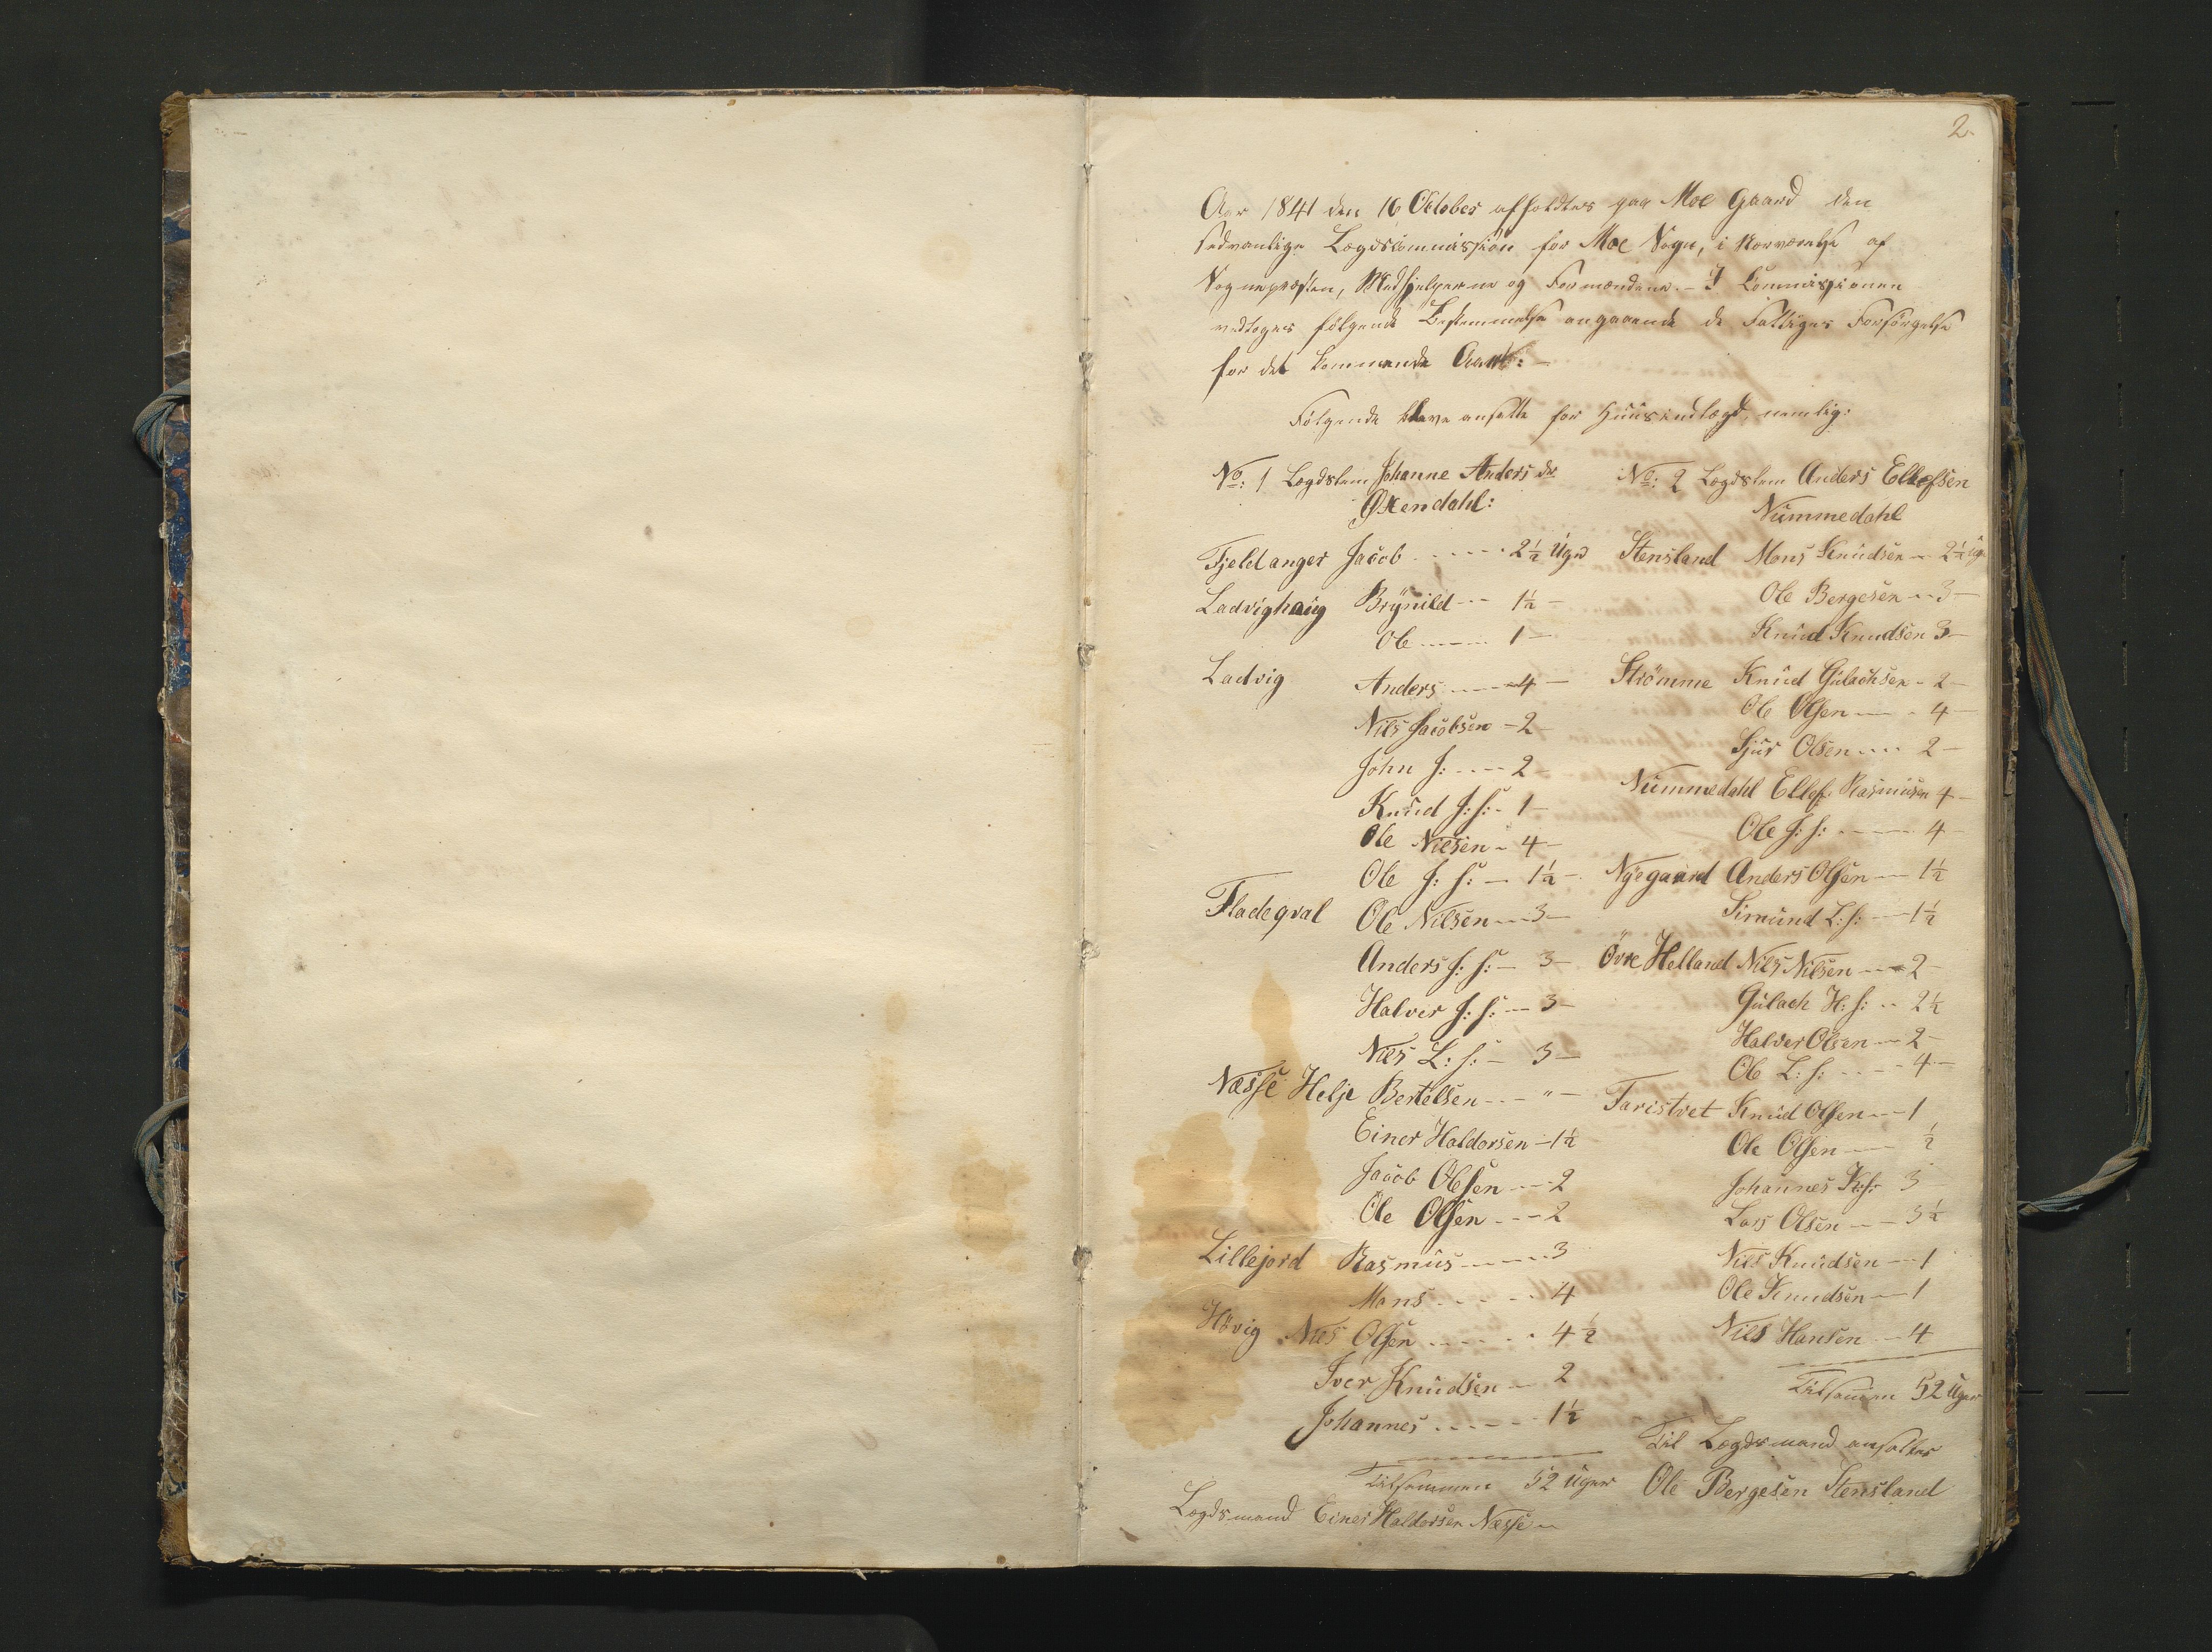 2
Aar 1841 den 16 October afholdtes paa Moe Gaard den
sedvanlige Lægdscommission for Moe Sogn, i Nærværelse af
Sognepræsten, Medhjelperne og Formændene. - I Commissionen
vedtoges følgende Bestemmelse angaaende de Fattiges Forsørgelse
for det kommende Aar: -
Følgende bleve ansatte for Huusindlægd, nemlig:
No: 1 Lægdslem Johanne Anders dr
Øxendahl:
Fjeldanger Jacob ..... 2 1/2 Uger
Ladvighaug Brynild --- 1 1/2 -
Ole ------ 1 -
Ladvig Anders ---- 4 -
Nils Jacobsen - 2 -
John J: ---- 2 -
Knud J: s: - 1 -
Ole Nilsen - 4 -
Ole J: s: - 1 1/2 -
Fladeqval Ole Nilsen --- 3 -
Anders J: s: - 3 -
Halver J: s: --- 3 -
Nils L: s: - 3 -
Næsse Helje Bertelsen --- " -
Einer Haldorsen - 1 1/2
Jacob Olsen --- 2
Ole Olsen --- 2
Lillejord Rasmus ----- 3
Mons ..... 4
Høvig Nils Olsen ...... 4 1/2
Iver Knudsen -- 2
Johannes ..... 1 1/2
Tilsammen 52 Uger
Lægdsmand Einer Haldorsen Næsse
No: 2 Lægdslem Anders Ellefsen
Nummedahl
Stensland Mons Knudsen -- 2 1/2 Ug
Ole Bergesen -- 3 -
Knud Knudsen 3 -
Strömme Knud Gulachsen - 2 -
Ole Olsen --- 4 -
Sjur Olsen ---- 2 -
Nummedahl Ellef Rasmusen 4 -
Ole J: s: ----- 4
Nyegaard Anders Olsen -- 1 1/2
Simund L: s: --- 1 1/2
Övre Helland Nils Nilsen --- 2 -
Gulach H: s: -- 2 1/2
Halver Olsen -- 2 -
Ole L: s: ---- 4 -
Knud Olsen --- 1
Ole Olsen --- 1/2
Johannes K: s: 3
Lars Olsen --- 3 1/2
Nils Knudsen --- 1
Ole Knudsen -- 1
Nils Hansen -- 4
Tilsammen 52 Uger
Til Lægdsmand ansattes
Ole Bergesen Stensland